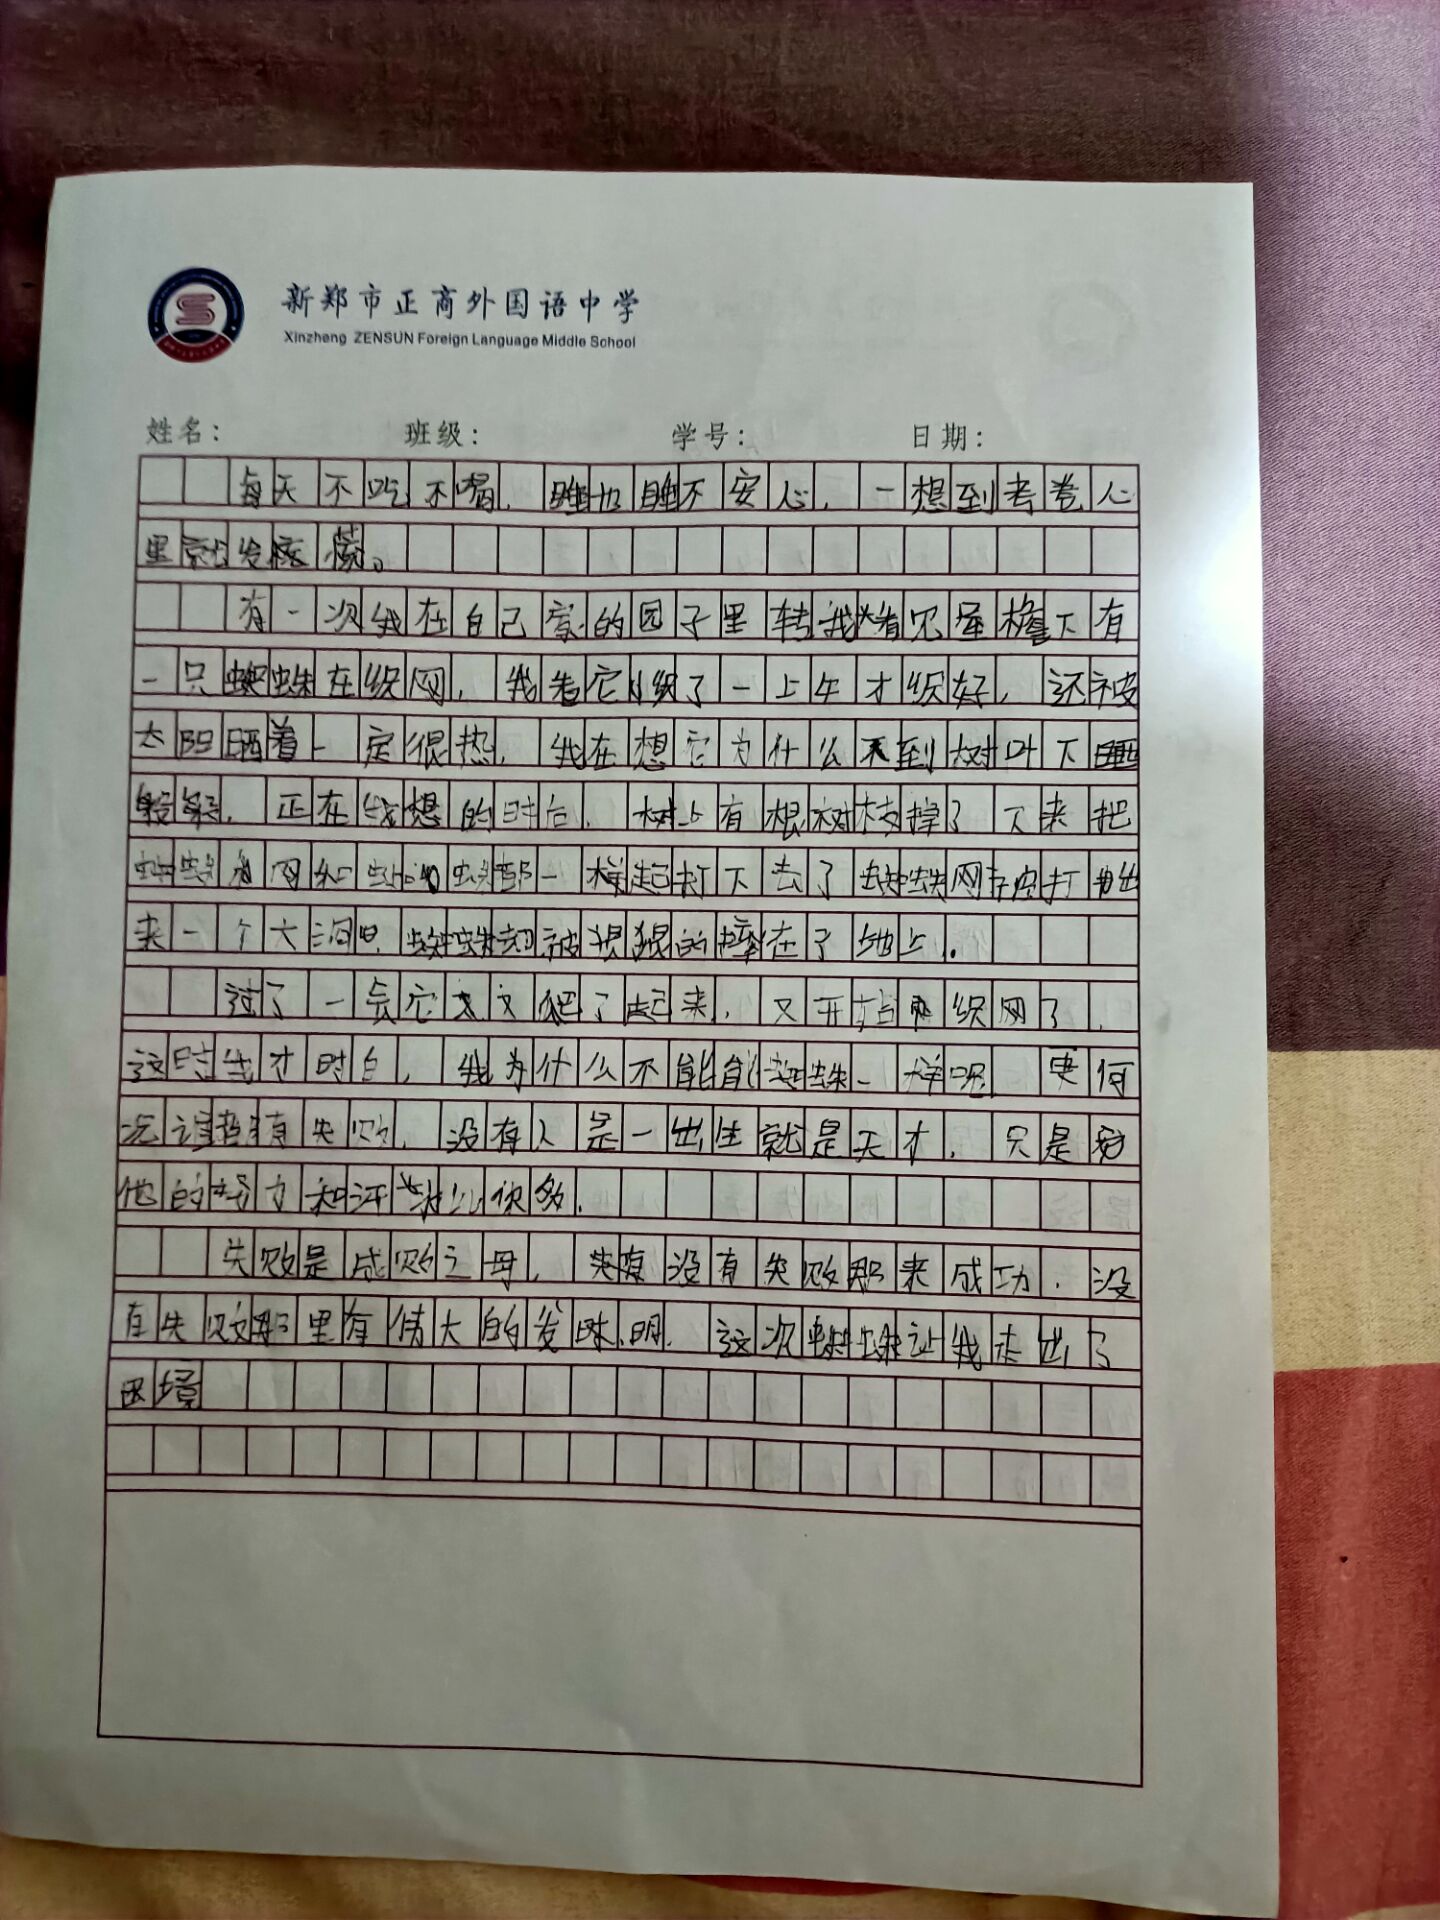 新郑市正商外国语中学
Xinzheng ZENSUN Foreign Language Middle School
姓名: 班级: 学号: 日期:
每天不吃不喝,睡也睡不安心,一想到考卷心
里就发慌。
有一次我在自己家的园子里转我看见屋檐下有
一只蜘蛛在织网,我看它织了一上午才织好,还被
太阳晒着一定很热,我在想它为什么不到树叶下
正在我想的时后,树上有根树枝掉了下来把
网和都一起打下去了蜘蛛网被打出
来一个大洞,蜘蛛却被狠狠的摔在了地上.
过了一会它又爬了起来,又开始织网了,
这时我才明白,我为什么不能蜘蛛一样呢,更何
况谁都有失败,没有人是一出生就是天才,只是
他的努力和汗你多.
失败是成败之母,没有失败那来成功,没
有失败那里有伟大的发明,这次蜘蛛让我走出了
困境